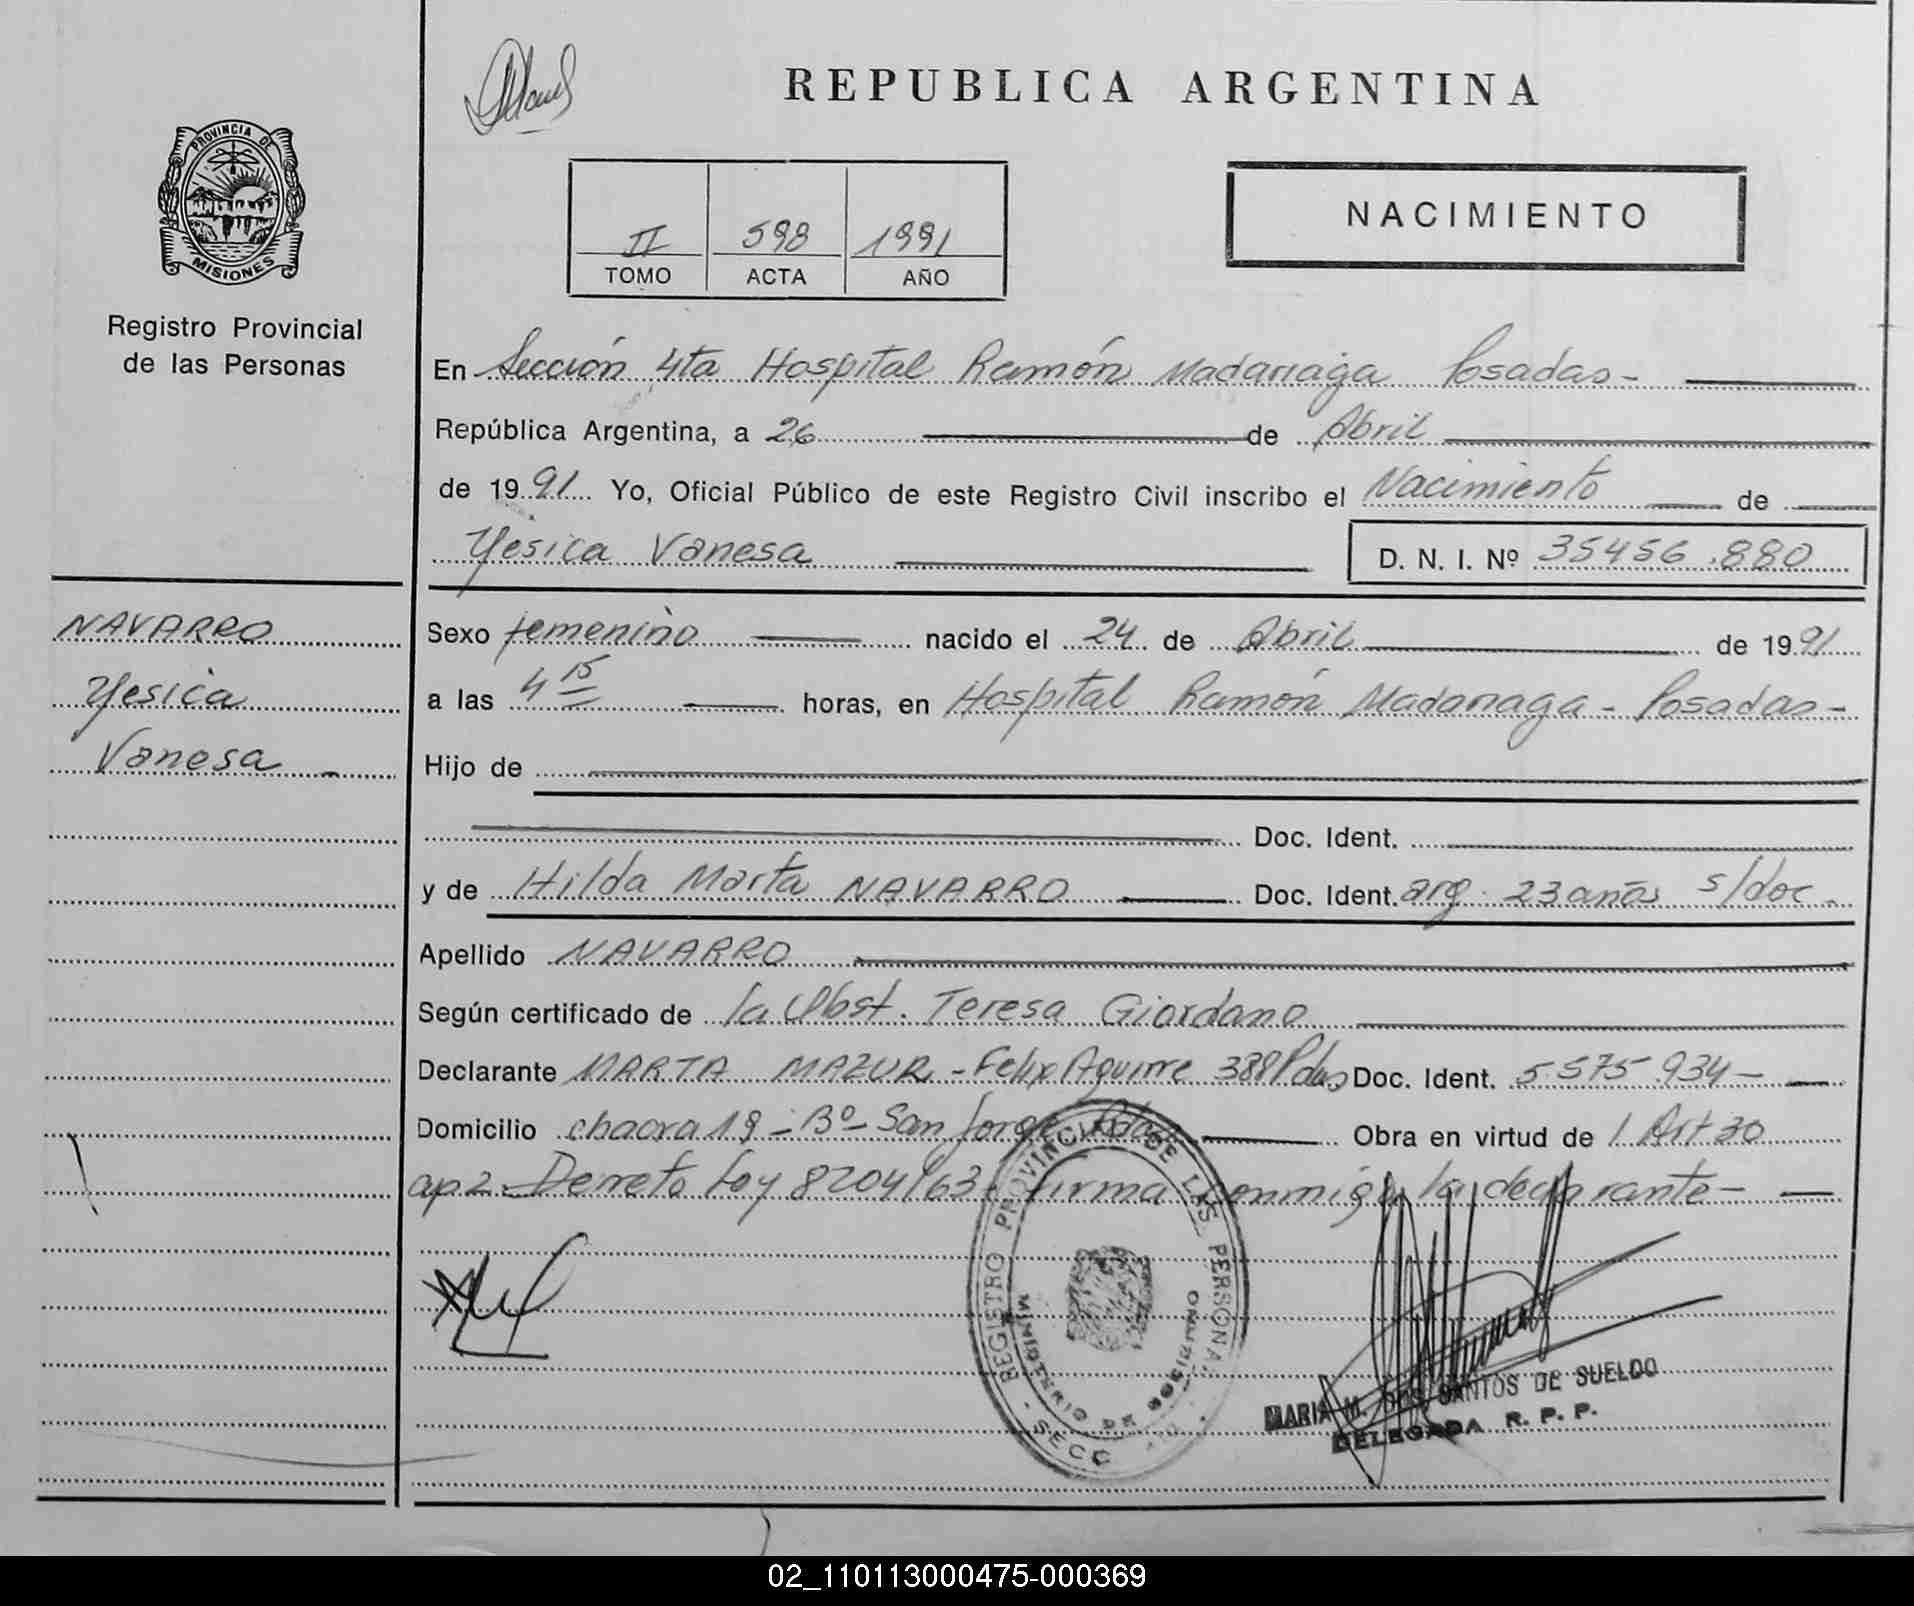 REPUBLICA ARGENTINA
PROVINCIA DE
MISIONES
Registro Provincial
de las Personas
II 598 1991
TOMO ACTA AÑO
NACIMIENTO
En Sección 4ta Hospital Ramón Madariaga Posadas-
República Argentina, a 26 de Abril
de 1991 Yo, Oficial Público de este Registro Civil inscribo el Nacimiento de
Yesica Vanesa D. N. I. Nº 35456.880
NAVARRO
Yesica
Vanesa -
Sexo femenino nacido el 24 de Abril de 1991
a las 4 15 horas, en Hospital Ramón Madariaga - Posadas-
Hijo de
Doc. Ident.
y de Hilda Marta NAVARRO Doc. Ident. arg. 23 años s/doc.
Apellido NAVARRO
Según certificado de la Obst. Teresa Giordano
Declarante MARTA MAZUR - Felix Aguirre 388 Pdas Doc. Ident. 5.575.934-
Domicilio chacra 19 - Bº San Jorge Pdas Obra en virtud de 1 Art 30
ap 2 - Decreto Ley 8204/63 - firma conmigo la declarante-
REGISTRO PROVINCIAL DE LAS PERSONAS
MINISTERIO DE GOBIERNO
SECC
MARIA M. DOS SANTOS DE SUELDO
DELEGADA R. P. P.
02_110113000475-000369